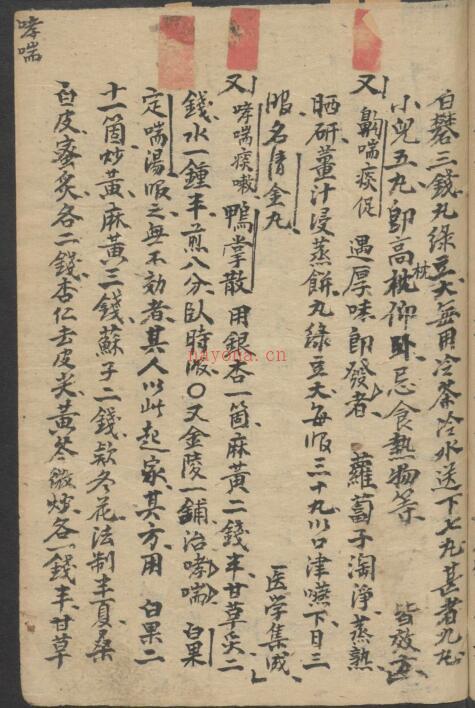 哮喘
白礬三錢丸綠豆大每用冷茶冷水送下七丸甚者九丸
小児五丸即高枕仰卧忌食熱物等 皆效方
枕
又 齁喘痰促 遇厚味即發者 蘿蔔子淘淨蒸熟
晒研薑汁浸蒸餅丸綠豆大每服三十丸以口津嚥下日三
服名清金丸 医学集成
又 哮喘痰嗽 鴨掌散 用銀杏一箇麻黄二錢半甘草炙二
錢水一鍾半煎八分臥時服〇又金陵一鋪治哮喘 白果
定喘湯服之無不効者其人以此起家其方用 白果二
十一箇炒黄麻黄三錢蘇子二錢欵冬花法制半夏桑
白皮蜜炙各二錢杏仁去皮尖黄芩微炒各一錢半甘草
nayona.cn